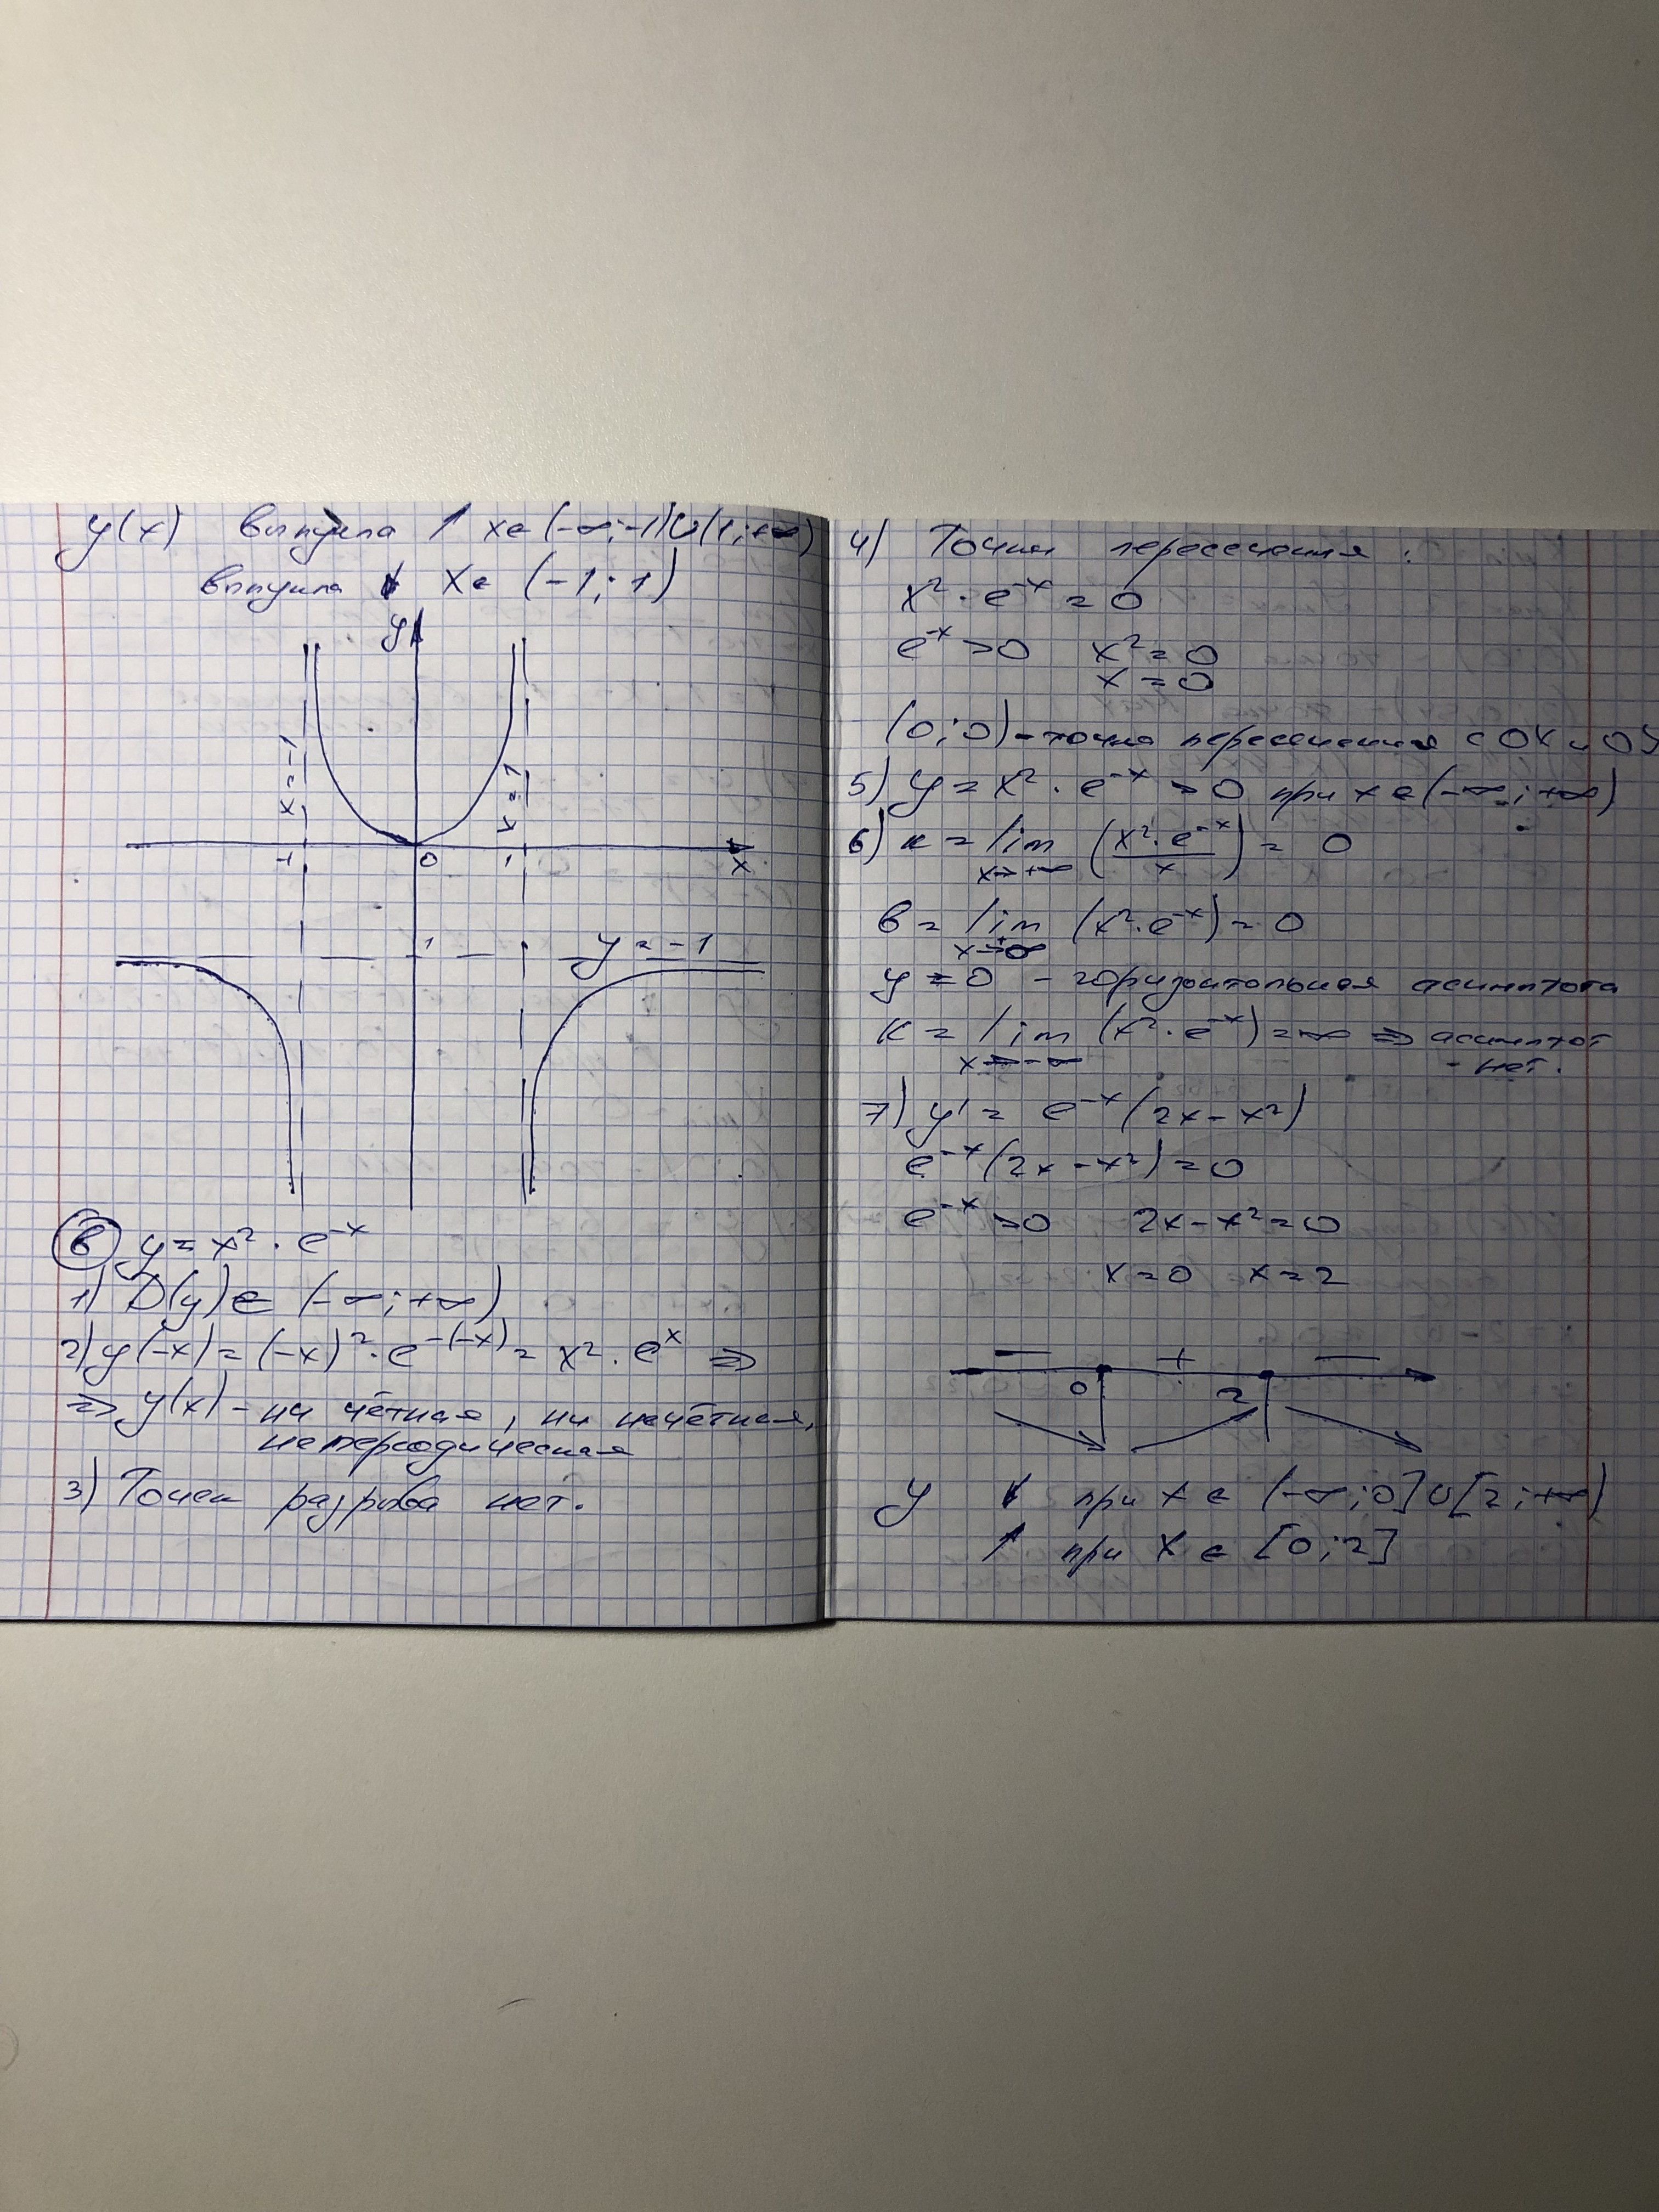 y(x) выпукла ↑ x∈(-∞;-1)∪(1;+∞)
выпукла ↓ x∈ (-1;1)
y
x=-1
x=1
-1 0 1 x
1
y=-1
в) y = x² · e⁻ˣ
1) D(y)∈ (-∞;+∞)
2) y(-x) = (-x)² · e^-(-x) = x² · eˣ ⇒
⇒ y(x) - ни чётная, ни нечётная,
непериодическая
3) Точек разрыва нет.
4) Точки пересечения:
x² · e⁻ˣ = 0
e⁻ˣ > 0 x² = 0
x = 0
(0;0) - точка пересечения с OX и OY
5) y = x² · e⁻ˣ > 0 при x∈(-∞;+∞)
6) к = lim x→+∞ (x² · e⁻ˣ / x) = 0
в = lim x→+∞ (x² · e⁻ˣ) = 0
y = 0 - горизонтальная асимптота
к = lim x→-∞ (x² · e⁻ˣ) = ∞ ⇒ асимптот
- нет.
7) y' = e⁻ˣ (2x - x²)
e⁻ˣ (2x - x²) = 0
e⁻ˣ > 0 2x - x² = 0
x = 0 x = 2
- + -
0 2
y ↓ при x ∈ (-∞;0]∪[2;+∞)
↑ при x ∈ [0;2]